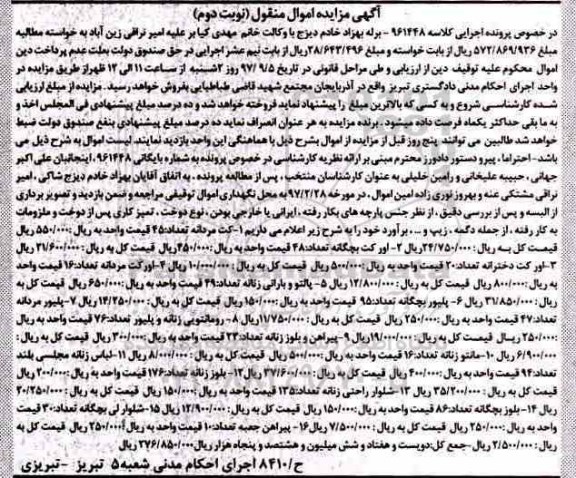 آگهی مزایده اموال منقول (نوبت دوم)
در خصوص پرونده اجرایی کلاسه ۹۶۱۴۴۸ - برله بهزاد خادم دیزج با وکالت خانم مهدی کیا بر علیه امیر نراقی زین آباد به خواسته مطالبه
مبلغ ۵۷۲/۸۶۹/۹۳۶ ریال از بابت خواسته و مبلغ ۲۸/۶۴۳/۴۹۶ ریال از بابت نیم عشر اجرایی در حق صندوق دولت بعلت عدم پرداخت دین
اموال محکوم علیه توقیف دین از ارزیابی و طی مراحل قانونی در تاریخ ۹۷/۹/۵ روز ۲شنبه از ساعت ۱۱ الی ۱۲ ظهر از طریق مزایده در
واحد اجرای احکام مدنی دادگستری تبریز واقع در آذربایجان مجتمع شهید قاضی طباطبایی بفروش خواهد رسید. مزایده از مبلغ ارزیابی
شده کارشناسی شروع و به کسی که بالاترین مبلغ را پیشنهاد نماید فروخته خواهد شد و ده درصد مبلغ پیشنهادی فی المجلس اخذ و
به ما بقی حداکثر یکماه فرصت داده میشود. برنده مزایده به هر عنوان انصراف نماید ده درصد مبلغ پیشنهادی بنفع صندوق دولت ضبط
خواهد شد طالبین می توانند پنج روز قبل از مزایده از اموال بشرح ذیل با هماهنگی این واحد بازدید نمایند. لیست اموال به شرح ذیل می
باشد- احتراما، پیرو دستور دادورز محترم مبنی بر ارائه نظریه کارشناسی در خصوص پرونده به شماره بایگانی ۹۶۱۴۴۸، اینجانبان علی اکبر
جهانی، حبیبه علیخانی و رامین خلیلی به عنوان کارشناسان منتخب، پس از مطالعه پرونده، به اتفاق آقایان بهزاد خادم دیزج شاکی، امیر
نراقی مشتکی عنه و بهروز نوری زاده امین اموال، در مورخه ۹۷/۲/۲۸ به محل نگهداری اموال توقیفی مراجعه و ضمن بازدید و تصویر برداری
از البسه و پس از بررسی دقیق، از نظر جنس پارچه های بکار رفته، ایرانی یا خارجی بودن، نوع دوخت، تمیز کاری پس از دوخت و ملزومات
به کار رفته، از جمله دگمه، زیپ و ...، برآورد خود را به شرح زیر اعلام می داریم ۱-کت مردانه تعداد:۴۵ قیمت واحد به ریال:۵۵۰/۰۰۰ ریال
قیمت کل به ریال: ۲۴/۷۵۰/۰۰۰ ریال ۲- اور کت بچگانه تعداد:۴۸ قیمت واحد به ریال:۴۵۰/۰۰۰ریال قیمت کل به ریال: ۲۱/۶۰۰/۰۰۰ ریال
۳-اور کت دخترانه تعداد:۲۰ قیمت واحد به ریال:۵۰۰/۰۰۰ ریال قیمت کل به ریال:۱۰/۰۰۰/۰۰۰ ریال ۴-اور کت مردانه تعداد:۱۶ قیمت واحد
به ریال:۸۰۰/۰۰۰ ریال قیمت کل به ریال:۱۲/۸۰۰/۰۰۰ ریال ۵- پالتو و بارانی زنانه تعداد:۴۹ قیمت واحد به ریال:۶۵۰/۰۰۰ ریال قیمت کل به
ریال:۳۱/۸۵۰/۰۰۰ ریال ۶- پلیور بچگانه تعداد:۹۵ قیمت واحد به ریال:۱۵۰/۰۰۰ ریال قیمت کل به ریال: ۱۴/۲۵۰/۰۰۰ ریال ۷-پلیور مردانه
تعداد:۴۷ قیمت واحد به ریال:۲۵۰/۰۰۰ ریال قیمت کل به ریال:۱۱/۷۵۰/۰۰۰ ریال ۸- رومانتویی زنانه و پلیور تعداد:۷۶ قیمت واحد به ریال:
۲۵۰/۰۰۰ ریال قیمت کل به ریال:۱۹/۰۰۰/۰۰۰ریال ۹-پیراهن و بلوز زنانه تعداد:۲۳ قیمت واحد به ریال:۳۰۰/۰۰۰ ریال قیمت کل به ریال:
۶/۹۰۰/۰۰۰ ریال ۱۰-مانتو زنانه تعداد:۱۶ قیمت واحد به ریال:۵۰۰/۰۰۰ ریال قیمت کل به ریال:۸/۰۰۰/۰۰۰ ریال ۱۱-لباس زنانه مجلسی بلند
تعداد:۹۴ قیمت واحد به ریال:۴۰۰/۰۰۰ ریال قیمت کل به ریال:۳۷/۶۰۰/۰۰۰ ریال ۱۲-بلوز زنانه تعداد:۱۷۶ قیمت واحد به ریال:۲۰۰/۰۰۰ ریال
قیمت کل به ریال:۳۵/۲۰۰/۰۰۰ ریال ۱۳-شلوار راحتی زنانه تعداد:۱۳۵ قیمت واحد به ریال:۱۵۰/۰۰۰ ریال قیمت کل به ریال:۲۰/۲۵۰/۰۰۰
ریال ۱۴-بلوز بچگانه تعداد:۸۶ قیمت واحد به ریال:۱۵۰/۰۰۰ ریال قیمت کل به ریال:۱۲/۹۰۰/۰۰۰ ریال ۱۵-شلوار لی بچگانه تعداد:۳۰ قیمت
واحد به ریال:۲۵۰/۰۰۰ ریال قیمت کل به ریال:۷/۵۰۰/۰۰۰ ریال ۱۶- پیراهن جمعه تعداد:۱۰ قیمت واحد به ریال:۲۵۰/۰۰۰ ریال قیمت کل به
ریال:۲/۵۰۰/۰۰۰ ریال-جمع کل:دویست و هفتاد و شش میلیون و هشتصد و پنجاه هزار ریال ۲۷۶/۸۵۰/۰۰۰ ریال
ح/۸۴۱۰ اجرای احکام مدنی شعبه۵ تبریز -تبریزی